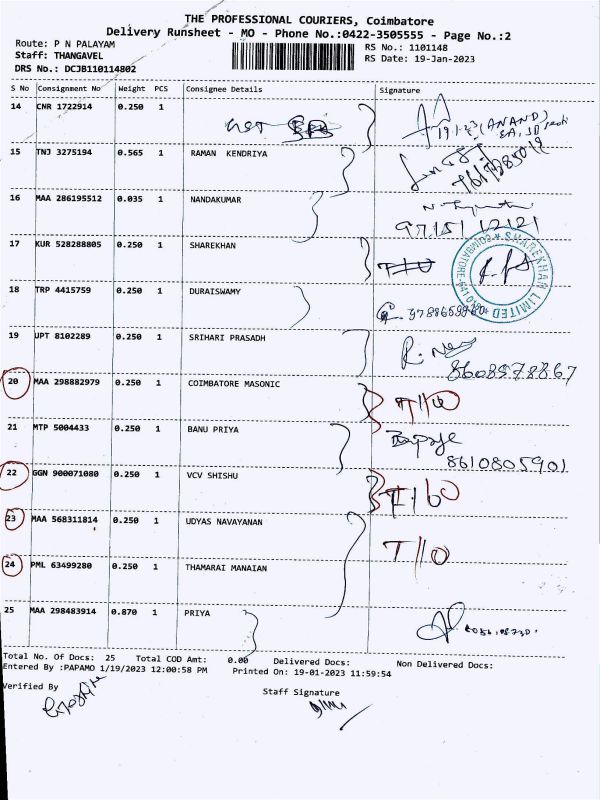 THE PROFESSIONAL COURIERS, Coimbatore
Delivery Runsheet - MO - Phone No.:0422-3505555 - Page No.:2
Route: P N PALAYAM
RS No.: 1101148
Staff: THANGAVEL
RS Date: 19-Jan-2023
DRS No.: DCJB110114802
S No Consignment No Weight PCS Consignee Details Signature
14 CNR 1722914 0.250 1
19.1.23 (ANAND)
15 TNJ 3275194 0.565 1 RAMAN KENDRIYA
16 MAA 286195512 0.035 1 NANDAKUMAR
97151 12121
17 KUR 528288805 0.250 1 SHAREKHAN T/O
SHAREKHAN LIMITED
18 TRP 4415759 0.250 1 DURAISWAMY
19 UPT 8102289 0.250 1 SRIHARI PRASADH
8608578867
20 MAA 298882979 0.250 1 COIMBATORE MASONIC T/O
21 MTP 5004433 0.250 1 BANU PRIYA
8610805901
22 GGN 900071080 0.250 1 VCV SHISHU T/O
23 MAA 568311814 0.250 1 UDYAS NAVAYANAN T/O
24 PML 63499280 0.250 1 THAMARAI MANAIAN
25 MAA 298483914 0.870 1 PRIYA
Total No. Of Docs: 25 Total COD Amt: 0.00 Delivered Docs: Non Delivered Docs:
Entered By :PAPAMO 1/19/2023 12:00:58 PM Printed On: 19-01-2023 11:59:54
Verified By
Staff Signature